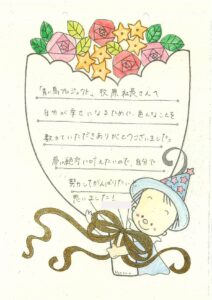 「青い鳥プロジェクト」牧原社長さんへ
自分が幸せになるためや、色んなことを
教えていただきありがとうございました。
夢は絶対に叶えたいので、自分で
努力してがんばりたいと
思いました!